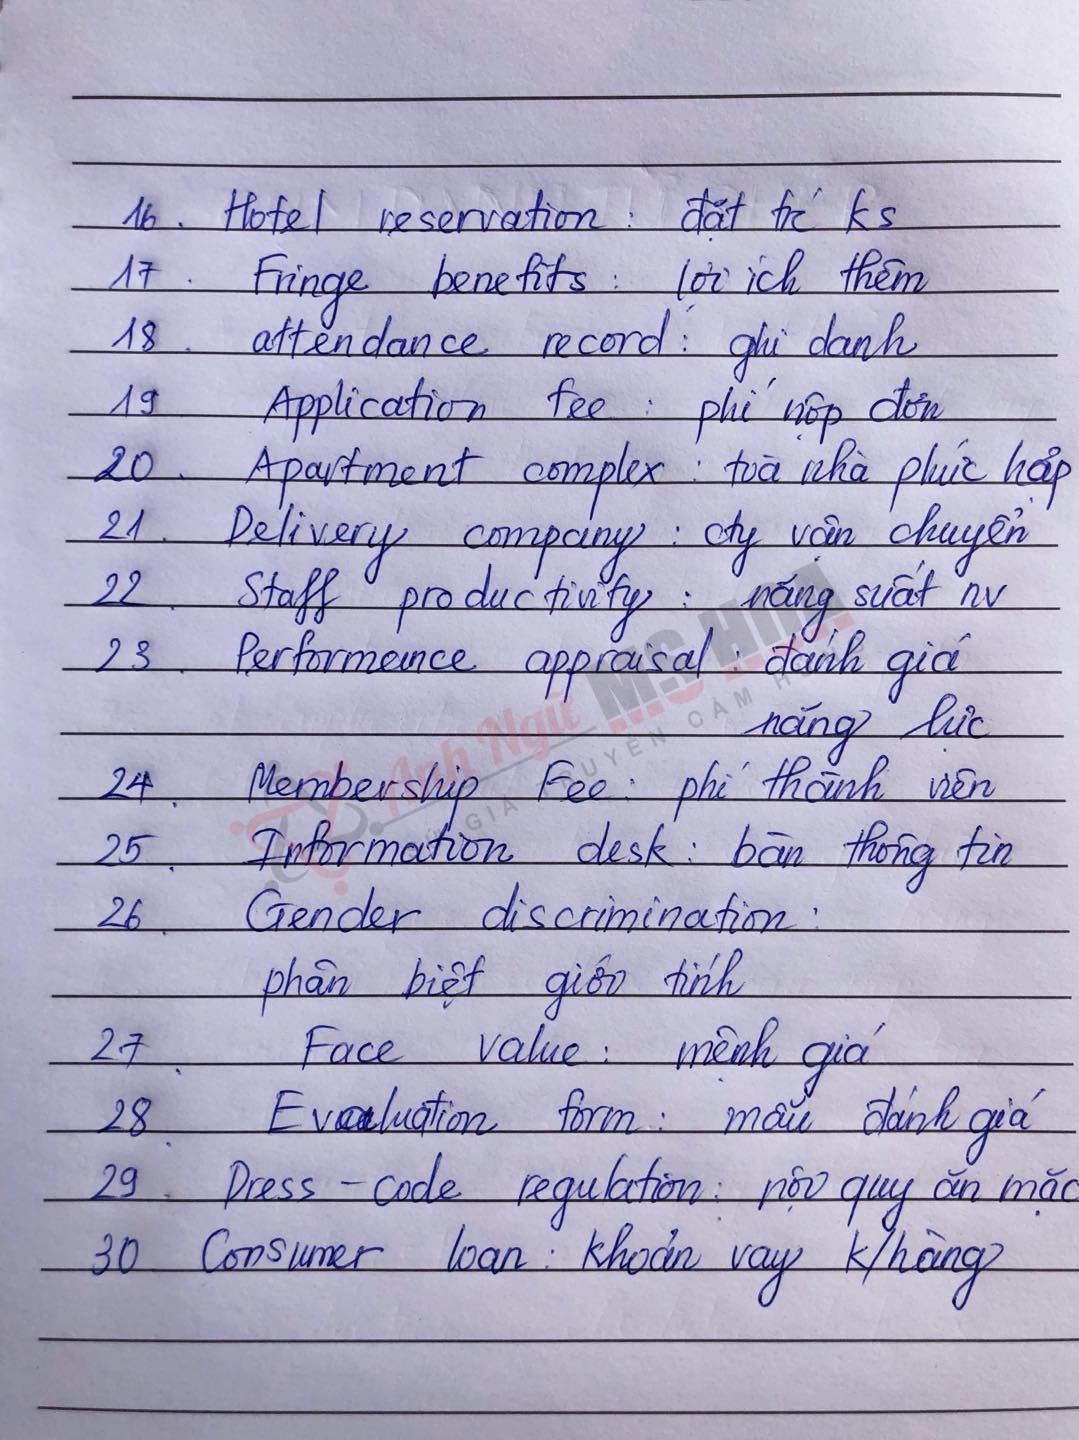 16. Hotel reservation: đặt trc ks
17. Fringe benefits: lợi ích thêm
18. attendance record: ghi danh
19 Application fee: phí nộp đơn
20. Apartment complex: toà nhà phức hợp
21. Delivery company: cty vận chuyển
22. Staff productivity: năng suất nv
23. Performance appraisal: đánh giá
năng lực
24. Membership Fee: phí thành viên
25. Information desk: bàn thông tin
26. Gender discrimination:
phân biệt giới tính
27. Face value: mệnh giá
28. Evaluation form: mẫu đánh giá
29. Dress-code regulation: nội quy ăn mặc
30 Consumer loan: khoản vay k/hàng
Anh Ngữ MS HOA